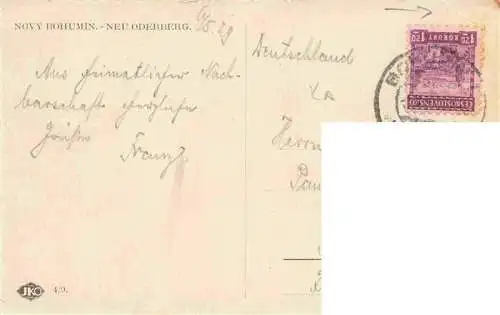 NOVÝ BOHUMÍN. - NEU ODERBERG.
6/8.29
Aus heimatlicher Nach-
barschaft herzliche
Grüße
Franz
Deutschland
Herrn
Pau
JKO
4/9.
1·20 KORUNY 1·20
ČESKOSLOVENSKO